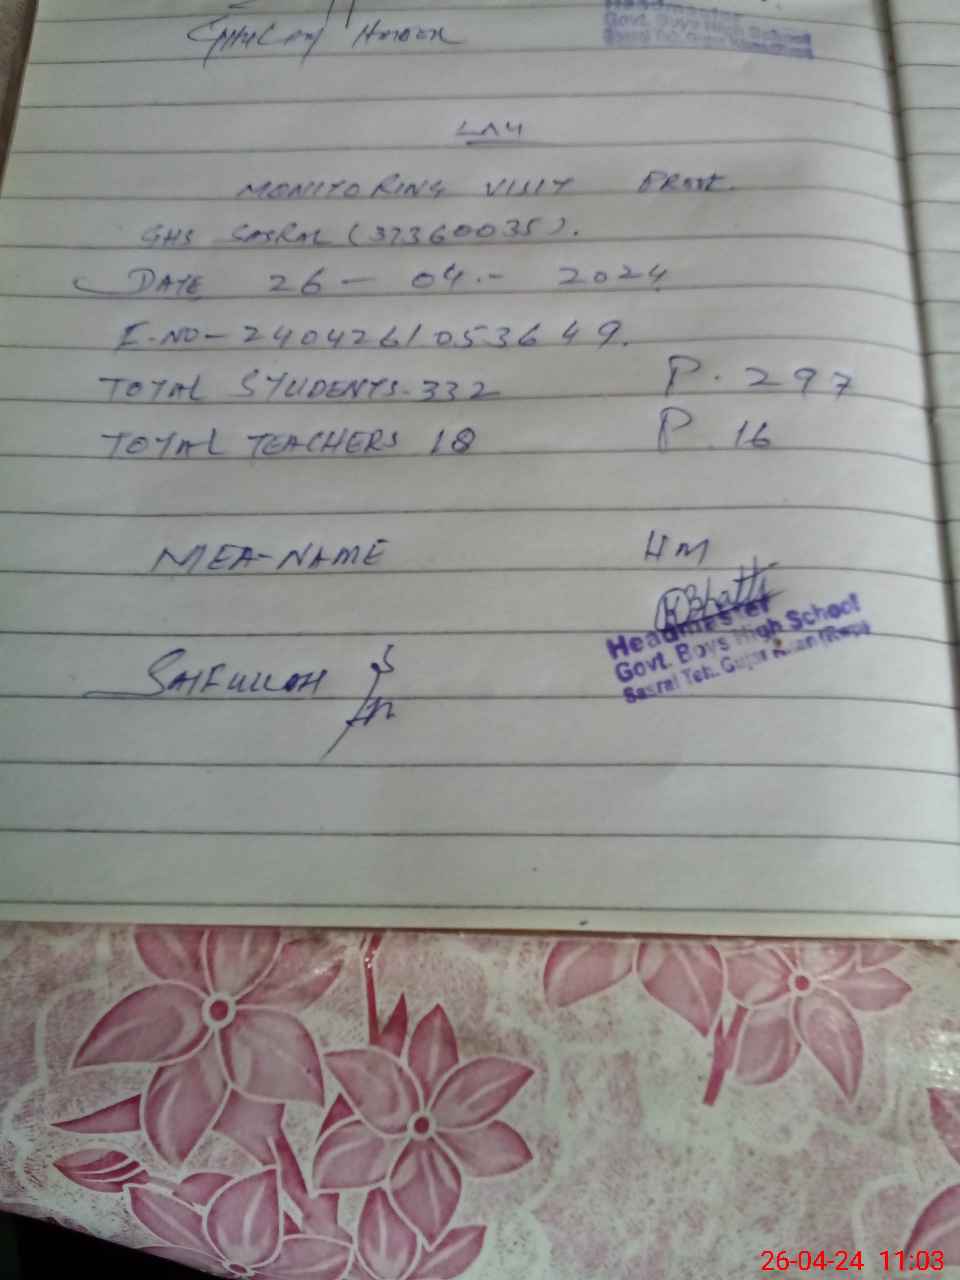 Ghulam Haider
Headmaster
Govt. Boys High School
LAY
MONITORING VISIT
GHS SASRAL (37360035).
DATE 26 - 04 - 2024
E-NO- 24042610536 49.
TOTAL STUDENTS- 332 P. 297
TOTAL TEACHERS 18 P. 16
MEA-NAME HM
KBhatti
Headmaster
Govt. Boys High School
Sasral Teh. Gujar Khan (Rwp)
SAIFULLAH
26-04-24 11:03